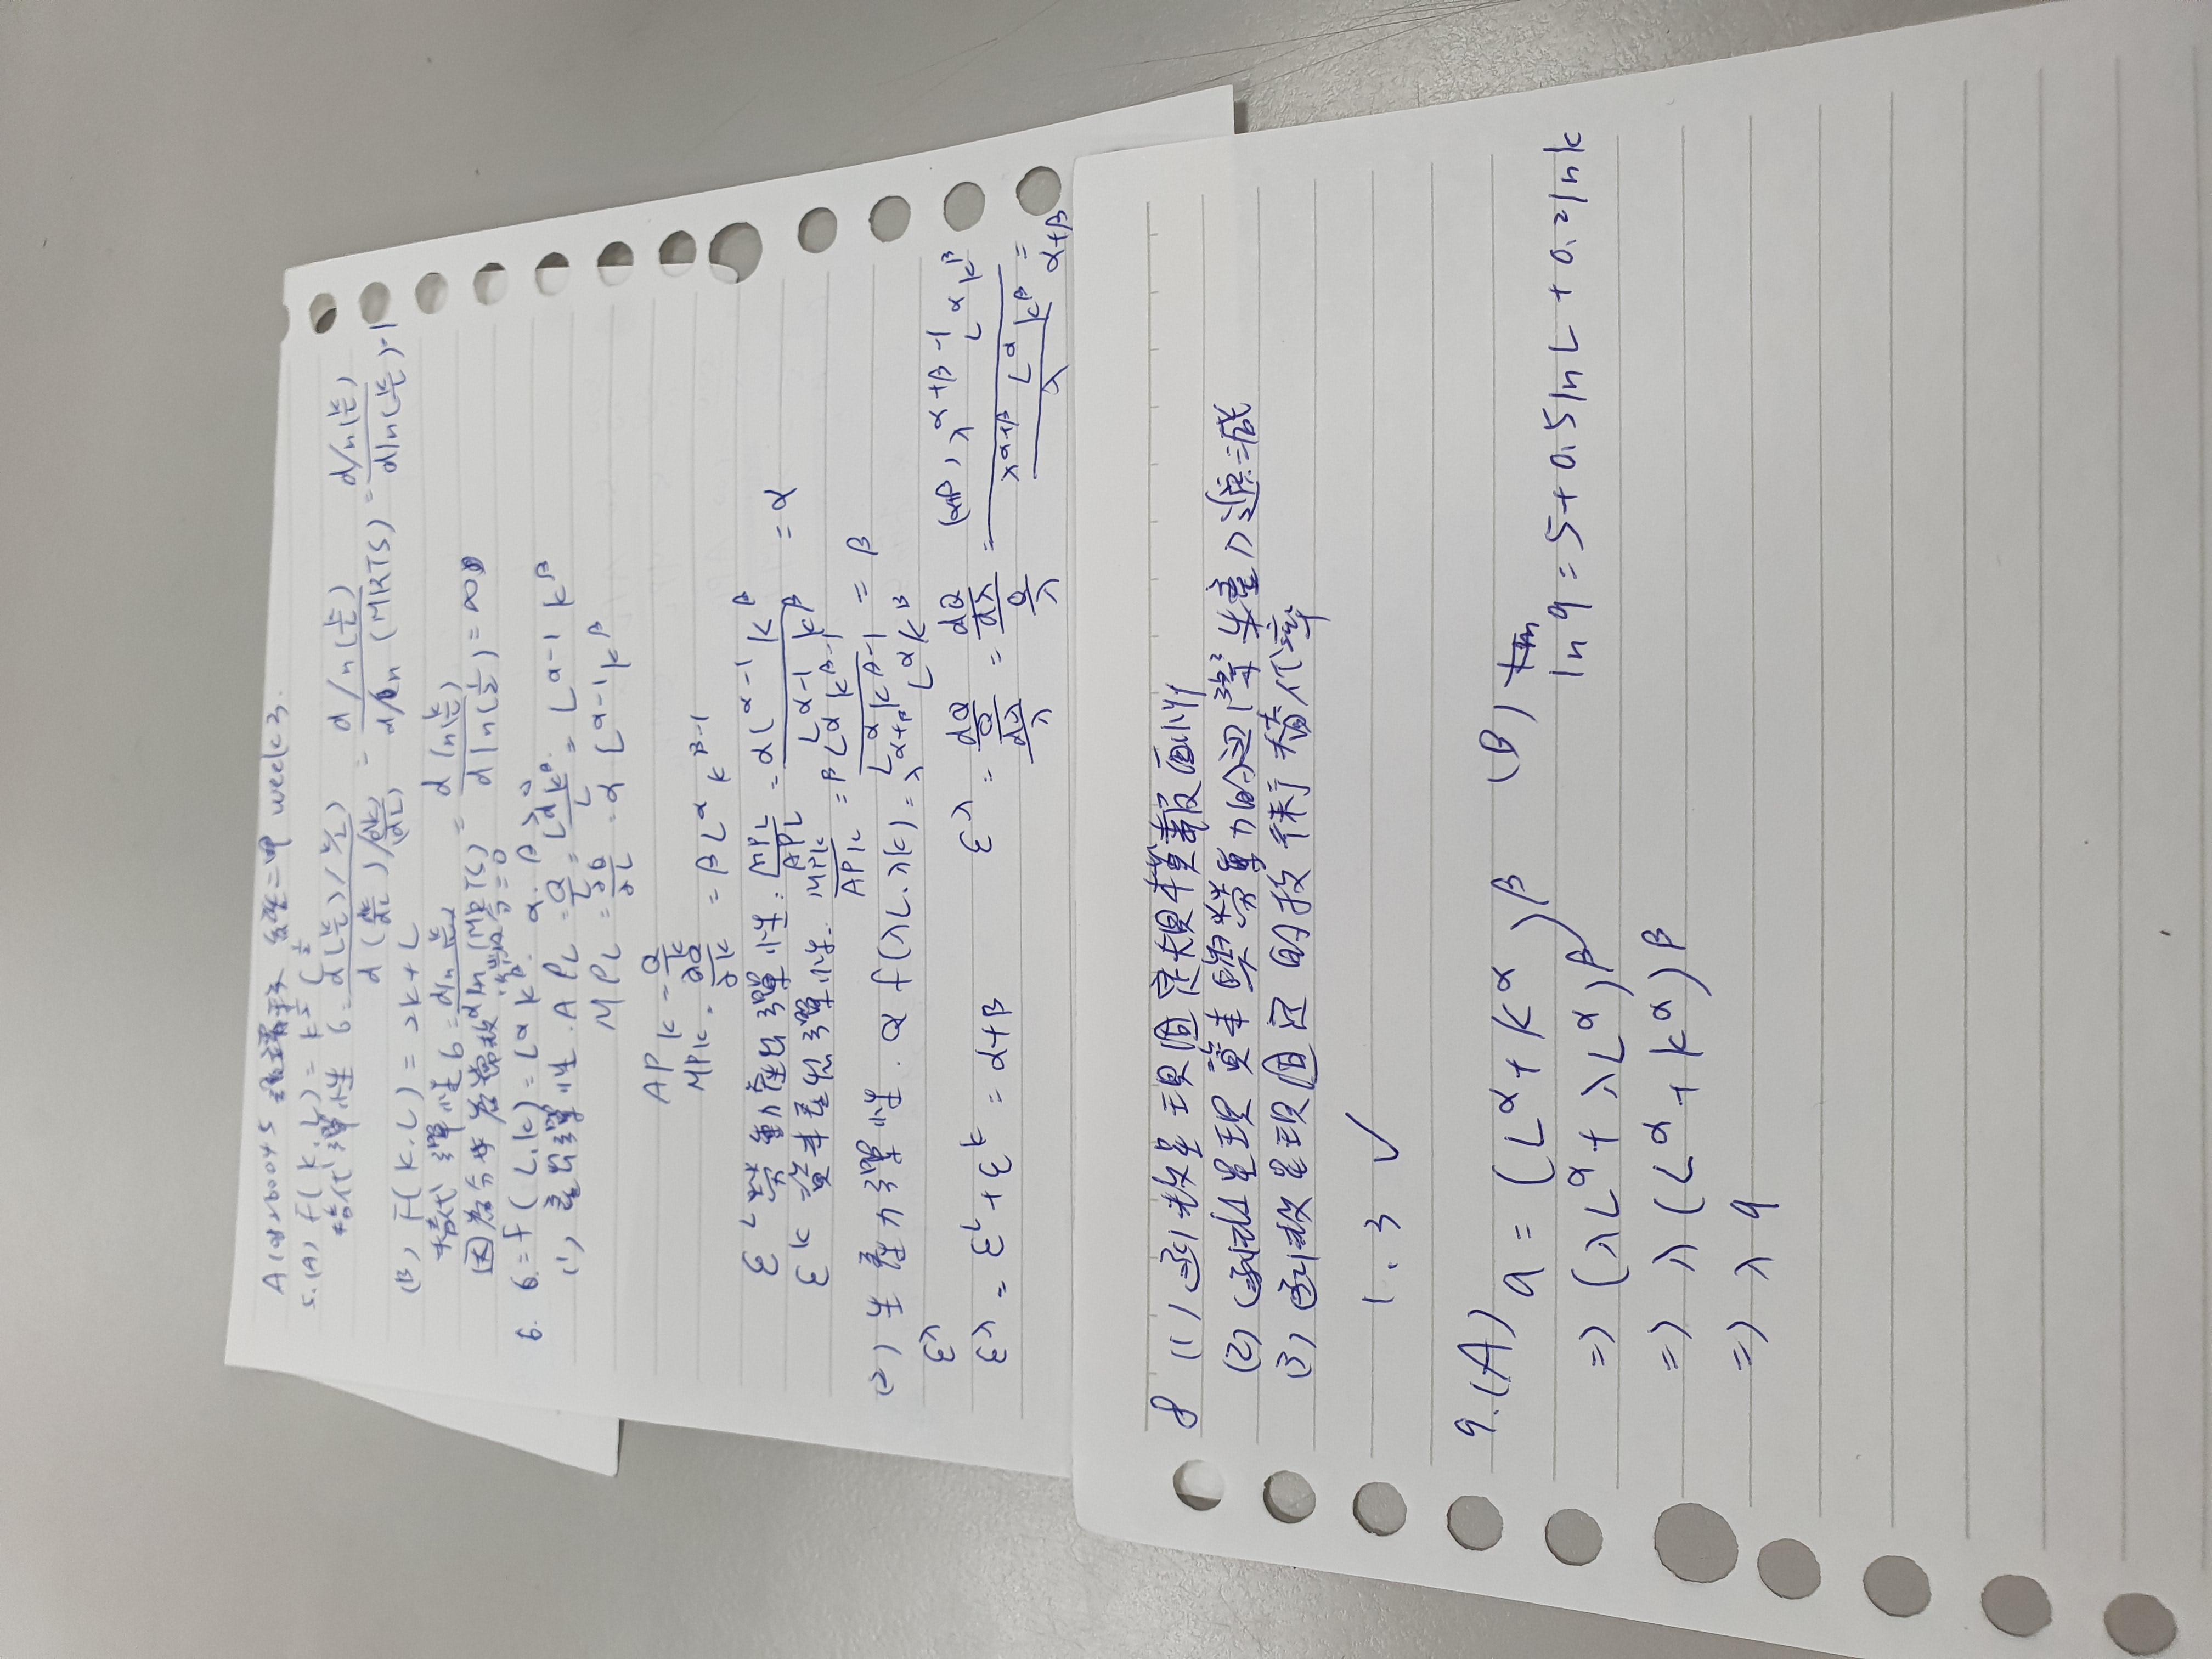 week 3.
5. (A) F(K.L) = K^½ L^½
替代彈性 6 = d(K/L)/K/L / d(dK/dL)/(dK/dL) = dln(K/L) / dln(MRTS) = dln(K/L) / dln(K/L) = 1
(B) F(K.L) = 2K+L
替代彈性 6 = dln K/L / dln(MRTS) = dln(K/L) / dln(½) = ∞
因為分母為常數 微分=0
6. Q = f(L.K) = L^α K^β. α. β > 0
(1) 產出彈性. APL = Q/L = L^α K^β / L = L^α-1 K^β
MPL = ∂Q/∂L = α L^α-1 K^β
APK = Q/K
MPK = ∂Q/∂K = β L^α K^β-1
ε^L 勞動產出彈性. MPL/APL = αL^α-1 K^β / L^α-1 K^β = α
ε^K 資本產出彈性. MPK/APK = β L^α K^β-1 / L^α K^β-1 = β
(2) 生產力彈性. Q f(λL.λK) = λ^α+β L^α K^β
ε^λ
ε^λ = ε^L + ε^K = α+β ε^λ = dQ/Q / dλ/λ = dQ/dλ / Q/λ = (α+β) λ^α+β-1 L^α K^β / λ^α+β L^α K^β / λ = α+β
8 (1) 函數呈現固定規模報酬
(2) 函數呈現資本與勞動力的邊際生產力遞減
(3) 函數呈現固定的技術替代率
1. 3 ✓
9. (A) q = (L^α + K^α)^β (B)
=> (λL^α + λL^α)^β ln q = 5 + 0.5 ln L + 0.2 ln K
=> λ (L^α + K^α)^β
=> λ q